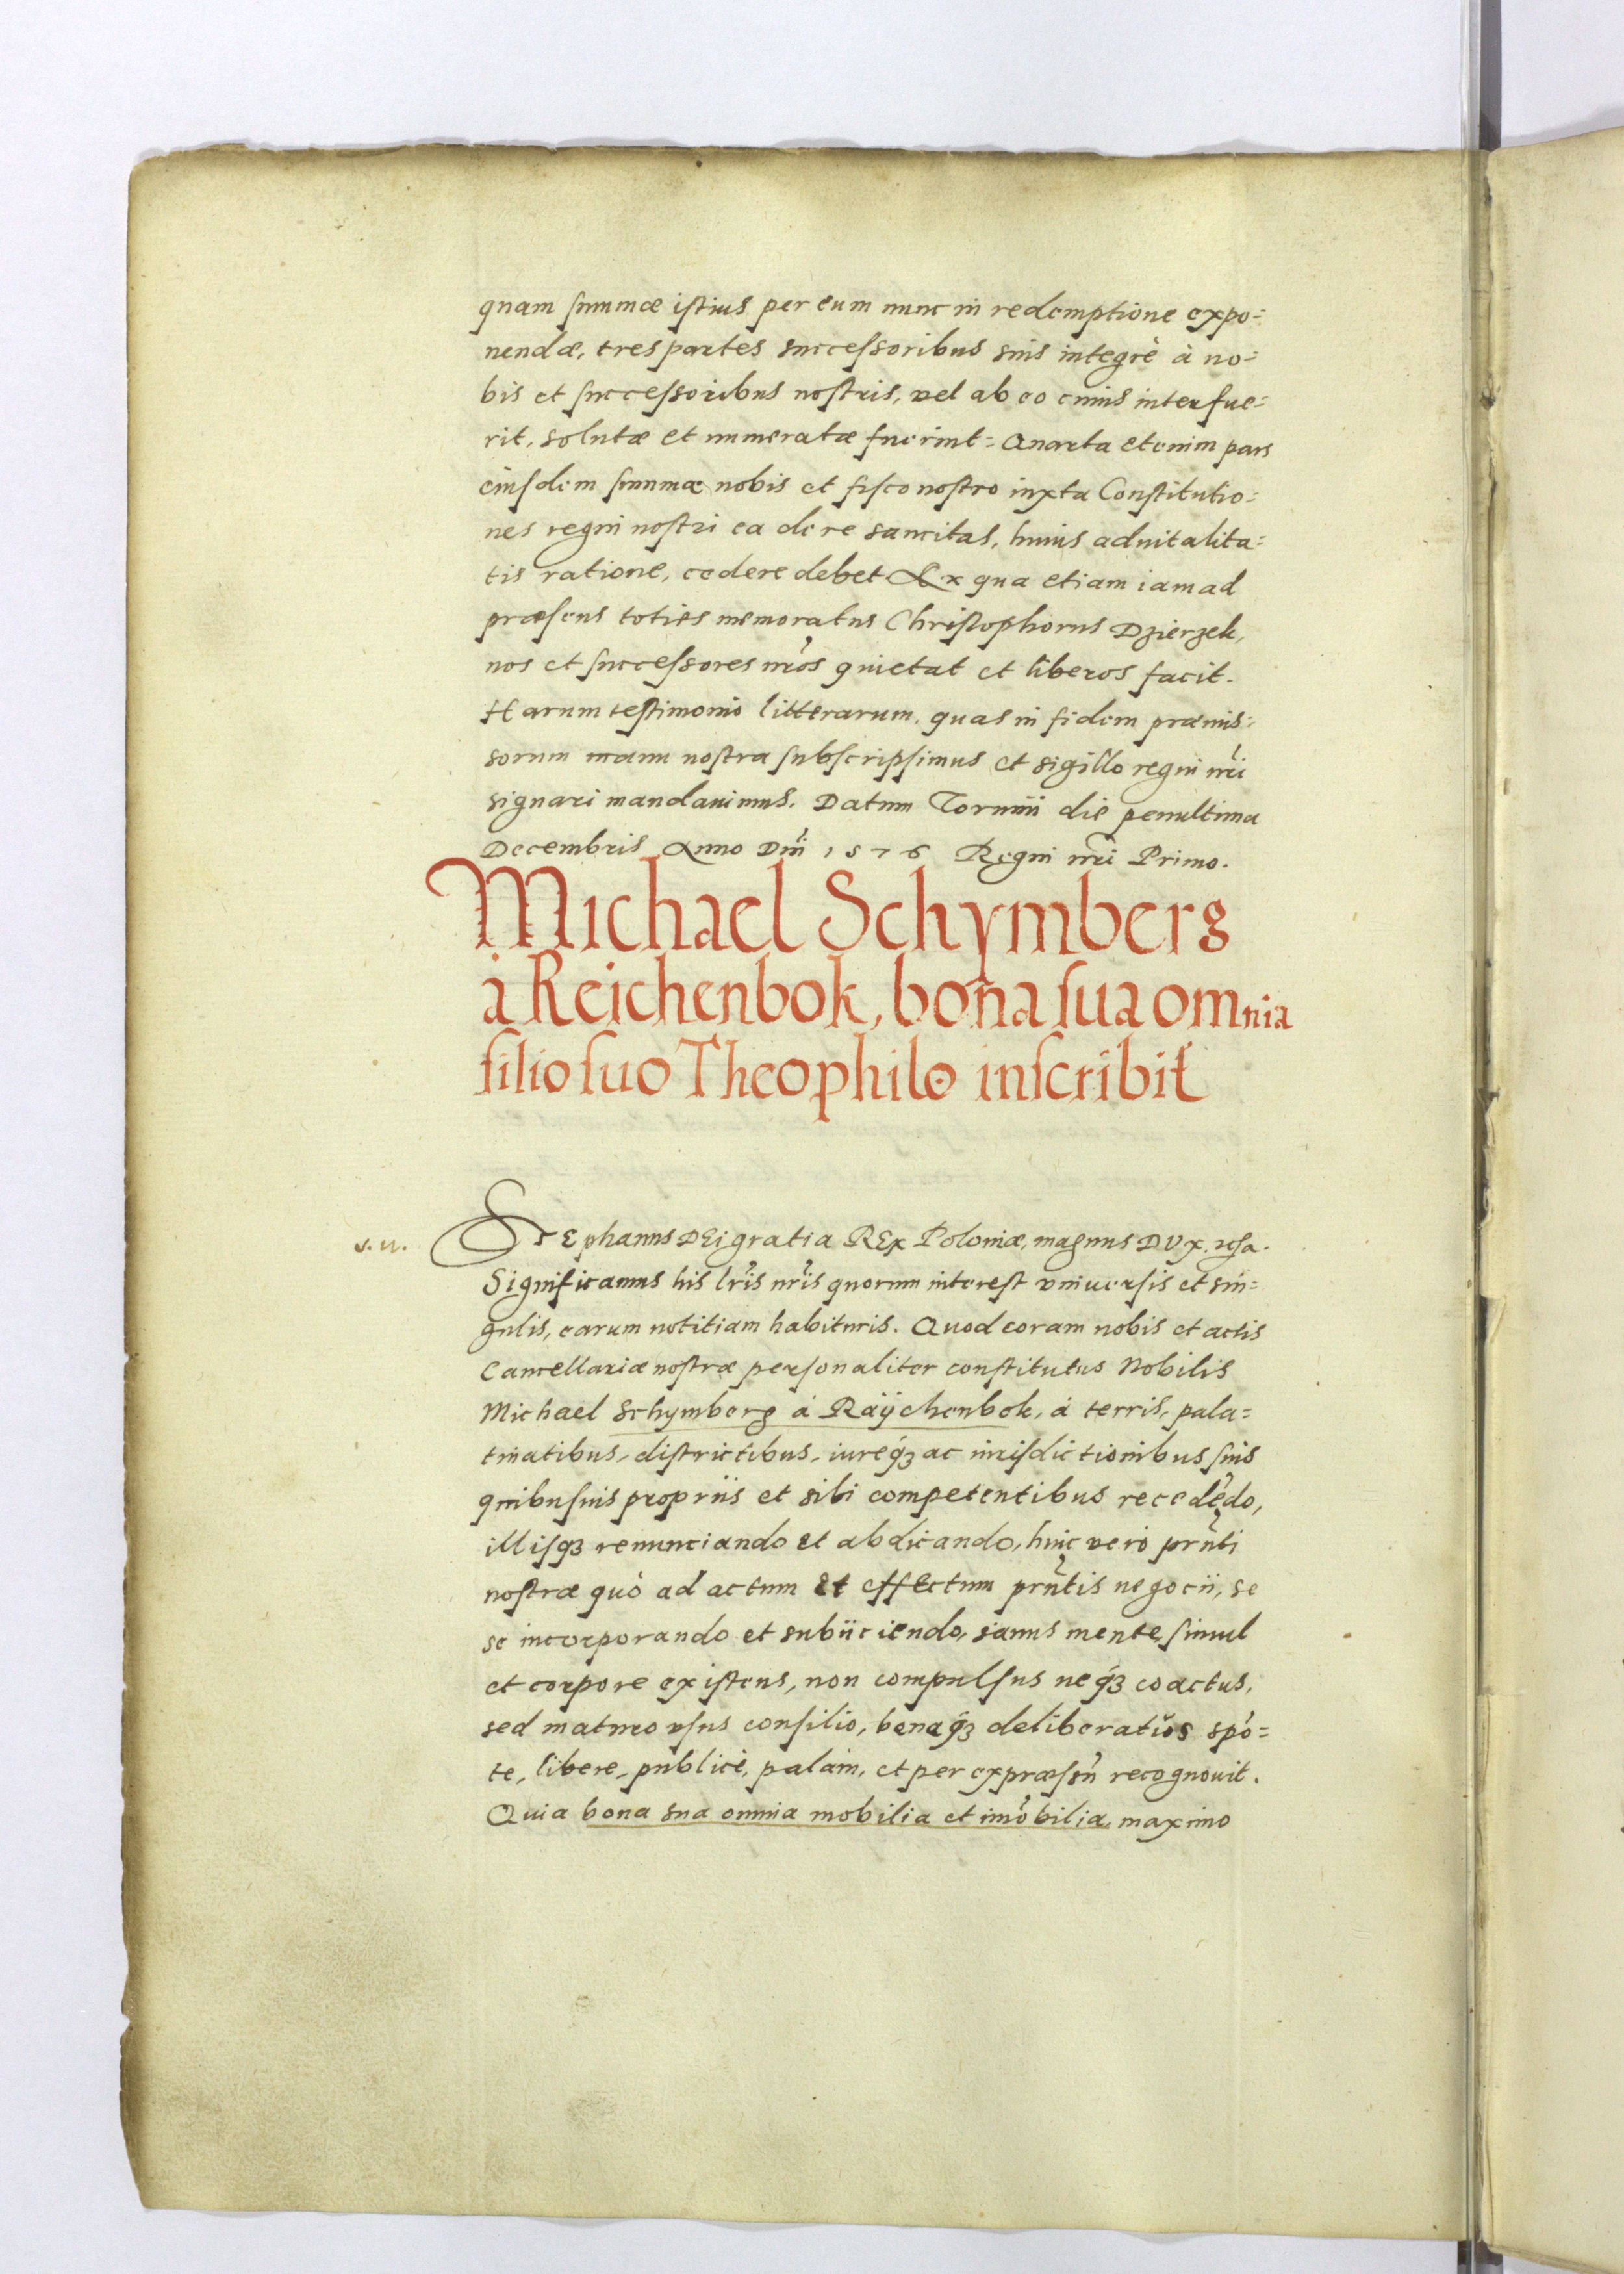 quam summæ istius per eum nunc in redemptione expo=
nendæ, tres partes successoribus suis integrè à no=
bis et successoribus nostris, vel ab eo cuius interfue=
rit, solutæ et numeratæ fuerint= Quarta etenim pars
eiusdem summæ nobis et fisco nostro iuxta Constitutio=
nes regni nostri ea de re sancitas, huius aduitalita=
tis ratione, cedere debet Ex qua etiam iam ad
præsens toties memoratus Christophorus Dzierzek,
nos et successores nr̃os quietat et liberos facit.
Harum testimonio litterarum, quas in fidem præmis=
sorum manu nostra subscripsimus et sigillo regni nr̃i
signari mandauimus. Datum Torunii die penultima
Decembris Anno Dñi 1576 Regni nr̃i Primo.
Michael Schymberg
à Reichenbok, bona sua omnia
filio suo Theophilo inscribit
s. n.
STEphanus DEi gratia REx Poloniæ, magnus DVx.
Significamus his lr̃is nr̃is quorum interest vniuersis et sin=
gulis, earum notitiam habituris. Quod coram nobis et actis
Cancellariæ nostræ personaliter constitutus Nobilis
Michael Schymberg à Raÿchenbok, à terris, pala=
tinatibus, districtibus, iureq́ꝫ ac iurisdictionibus suis
quibusuis propriis et sibi competentibus recedẽdo,
illisqꝫ renunciando et abdicando, huic verò prñti
nostræ quò ad actum et effectum prñtis negocii, se
se incorporando et subiiciendo, sanus mente simul
et corpore existens, non compulsus neq́ꝫ coactus,
sed maturo vsus consilio, beneq́ꝫ deliberatus spõ=
te, liberè, publicè, palàm, et per expræssũ recognouit.
Quia bona sua omnia mobilia et imõbilia, maximo